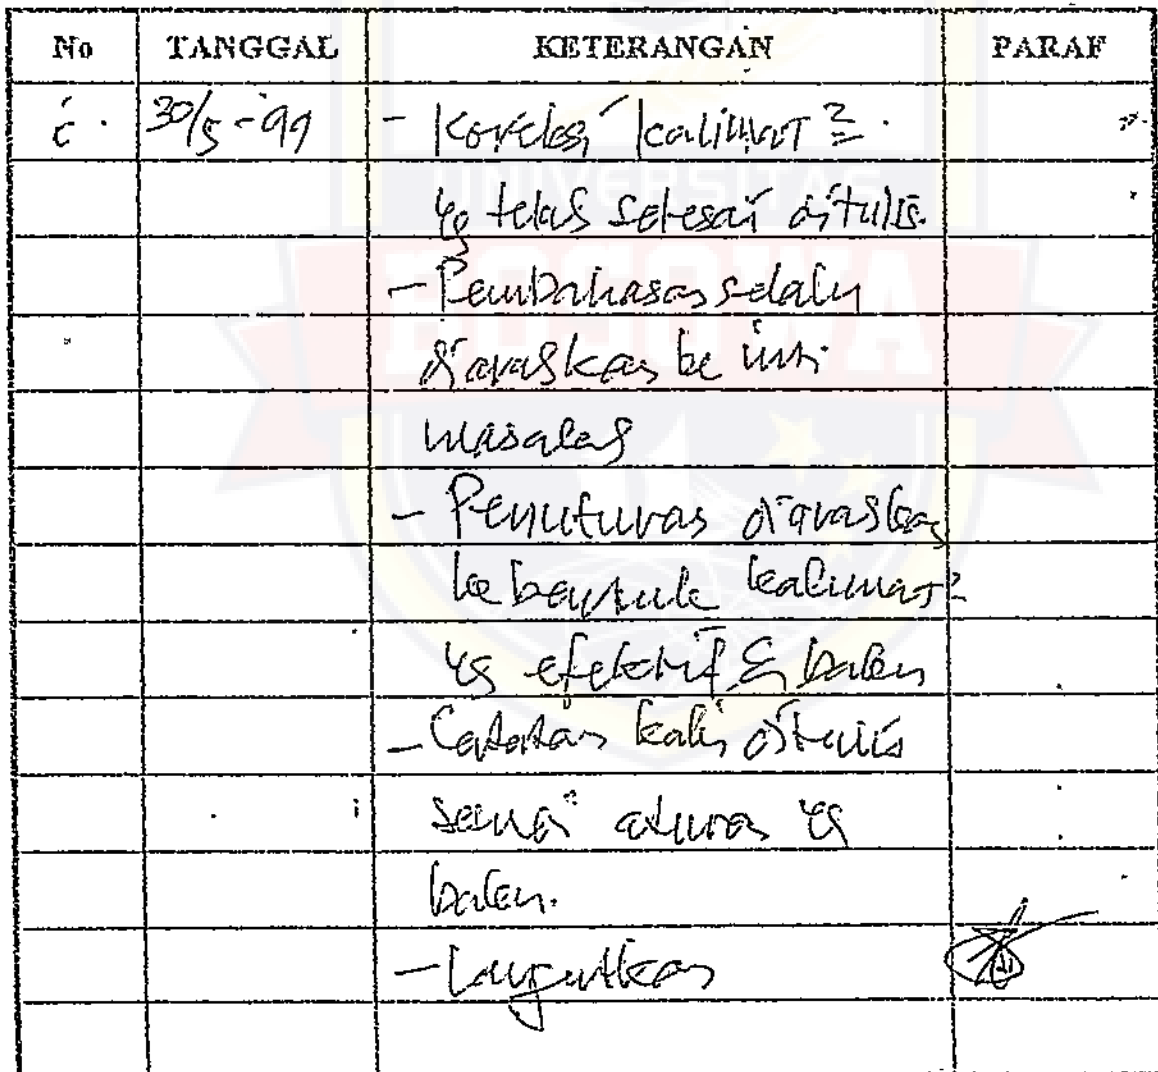 No TANGGAL KETERANGAN PARAF
30/5-'99 - Koreksi kalimat2.
yg telah selesai ditulis.
- Pembahasan selalu
diarahkan ke inti
masalah
- Penuturan diarahkan
ke bentuk kalimat2
yg efektif & baku
- Catatan kaki ditulis
sesuai aturan yg
baku.
- Lanjutkan
UNIVERSITAS
BOSOWA